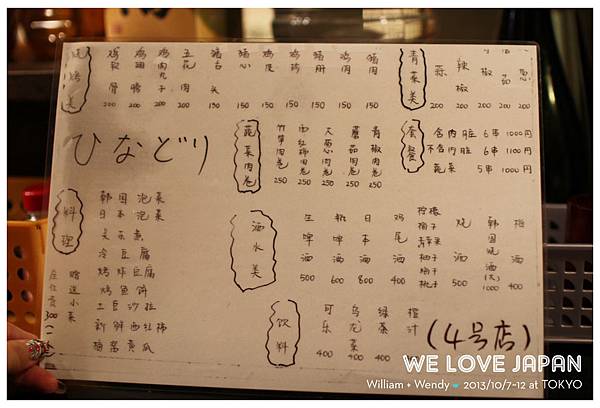 烧烤美
鸡软骨 200
鸡翅 200
鸡肉丸子 200
五花肉 200
猪舌头 150
猪心 150
鸡皮 150
鸡胗 150
猪肝 150
鸡肉 150
猪肉 150
青菜美
蒜 200
辣椒 200
200
200
200
ひなどり
蔬菜肉卷
竹笋肉卷 250
西红柿肉卷 250
大葱肉卷 250
蘑菇肉卷 250
青椒肉卷 250
套餐
含内脏 6串 1000円
不含内脏 6串 1100円
蔬菜 5串 1000円
料理
韩国泡菜
日本泡菜
关东煮
冷豆腐
烤炸豆腐
烤鱼饼
土豆沙拉
新鲜西红柿
梅酱黄瓜
赠送小菜
座位费300
酒水美
生啤酒 500
瓶啤酒 600
日本酒 800
鸡尾酒 400
柠檬
柚子
青苹果
桃子
烧酒 500
韩国烧酒(大) 1000
梅酒 400
饮料
可乐 400
乌龙茶 400
绿茶 400
橙汁 400
(4号店)
WE LOVE JAPAN
William + Wendy 2013/10/7-12 at TOKYO